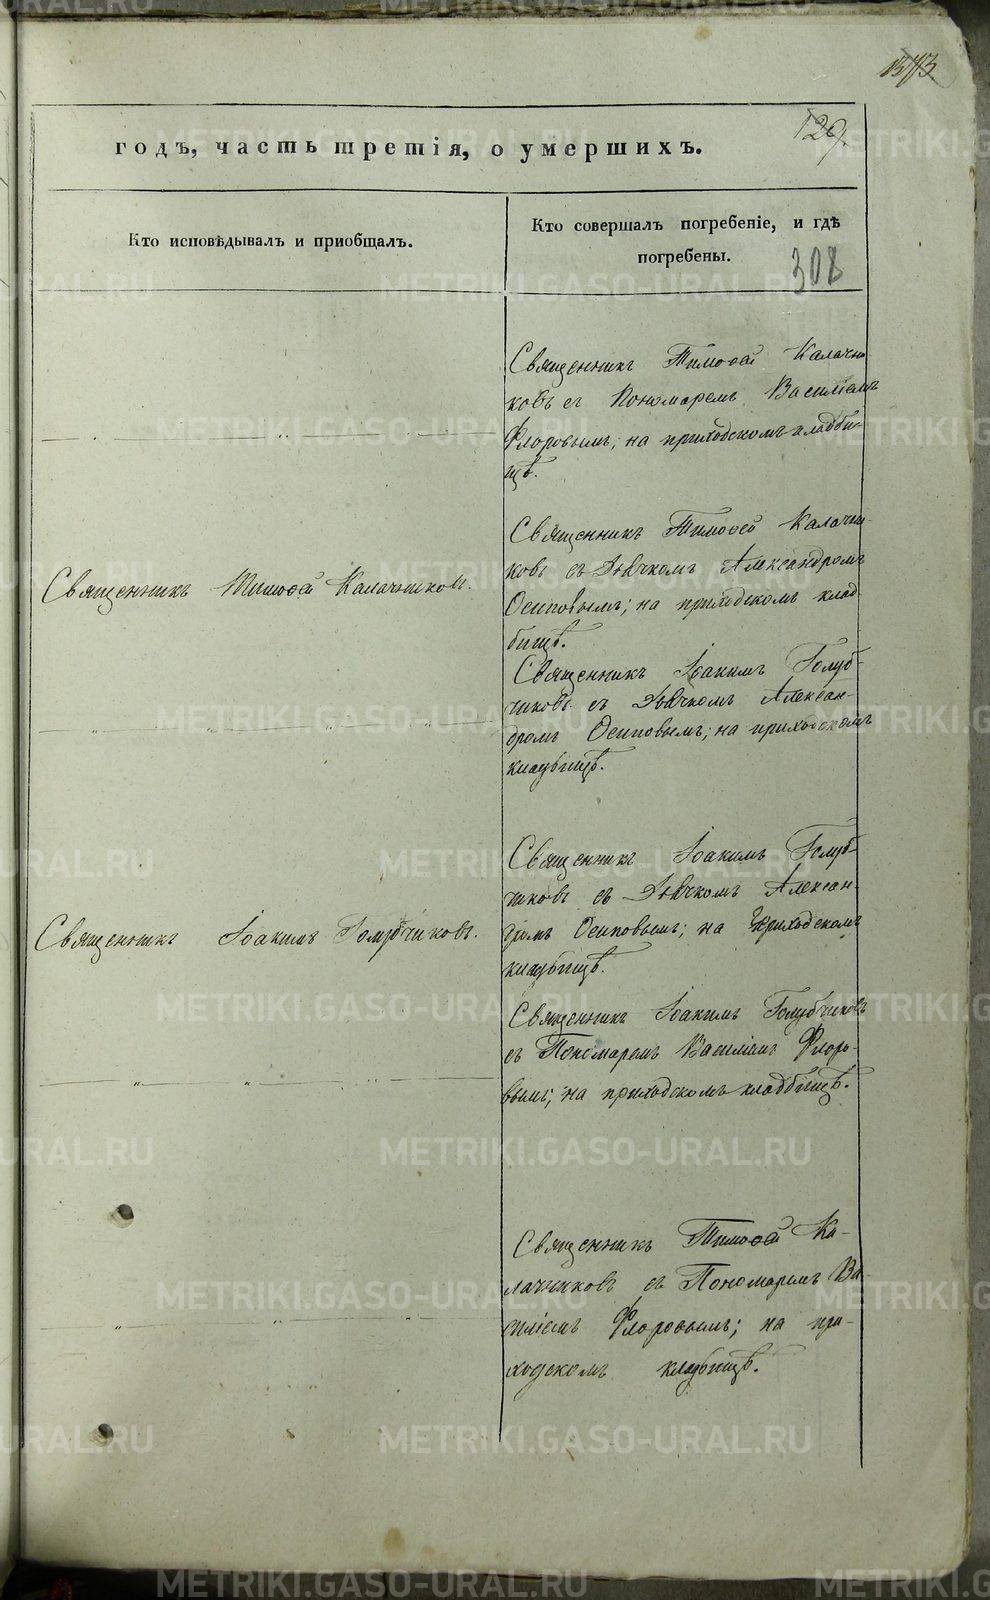 1573
129.
годъ, часть третія, о умершихъ.
Кто исповѣдывалъ и пріобщалъ.
Кто совершалъ погребеніе, и гдѣ
погребены.
308
Священникъ Тимоѳей Калачни-
ковъ съ Пономаремъ Василіемъ
Флоровымъ; на приходскомъ кладби-
щѣ.
Священникъ Тимоѳей Калачниковъ.
Священникъ Тимоѳей Калачни-
ковъ съ Дьячкомъ Александромъ
Осиповымъ; на приходскомъ клад
бищѣ.
Священникъ Іоакимъ Голуб-
чиковъ съ Дьячкомъ Алексан-
дромъ Осиповымъ; на приходскомъ
кладбищѣ.
Священникъ Іоакимъ Голубчиковъ.
Священникъ Іоакимъ Голуб-
чиковъ съ Дьячкомъ Алексан-
дромъ Осиповымъ; на приходскомъ
кладбищѣ.
Священникъ Іоакимъ Голубчиковъ
съ Пономаремъ Василіемъ Флоро-
вымъ; на приходскомъ кладбищѣ.
Священникъ Тимоѳей Ка-
лачниковъ съ Пономаремъ Ва-
силіемъ Флоровымъ; на при-
ходскомъ кладбищѣ.
METRIKI.GASO-URAL.RU